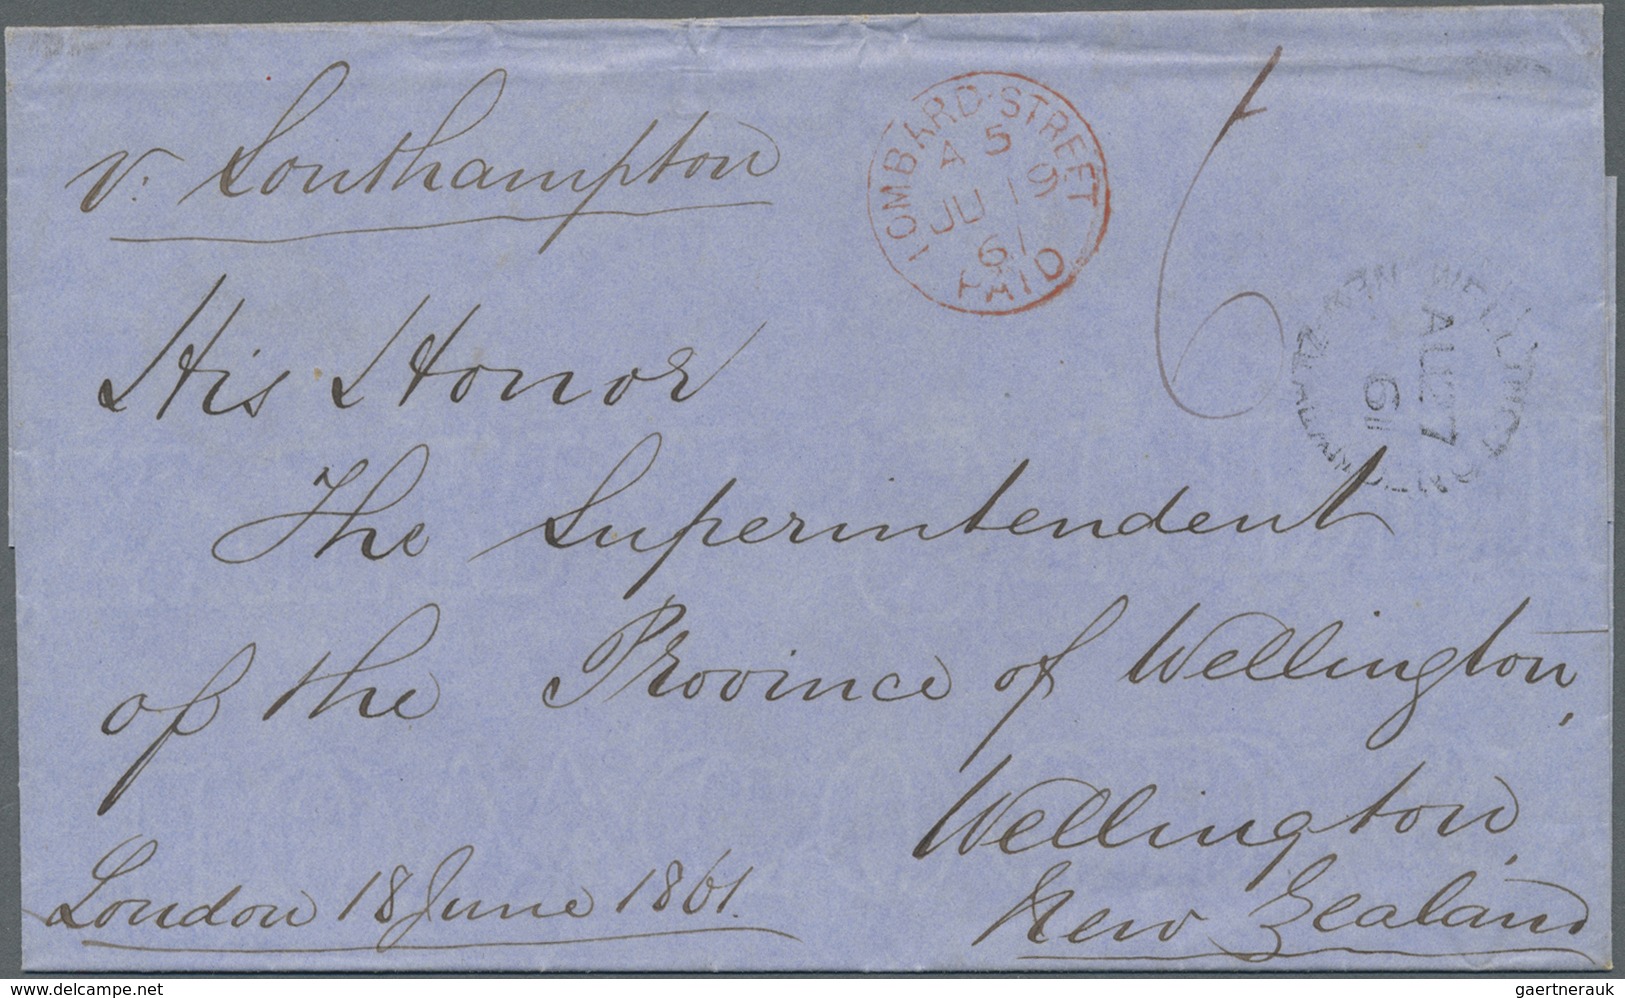 v. Southampton
LOMBARD STREET
A 5
JU 19
61
PAID
6
WELLINGTON
AU 27
61
NEW ZEALAND
His Honor
The Superintendent
of the Province of Wellington,
Wellington,
New Zealand
London 18 June 1861.
www.delcampe.net
gaertnerauk